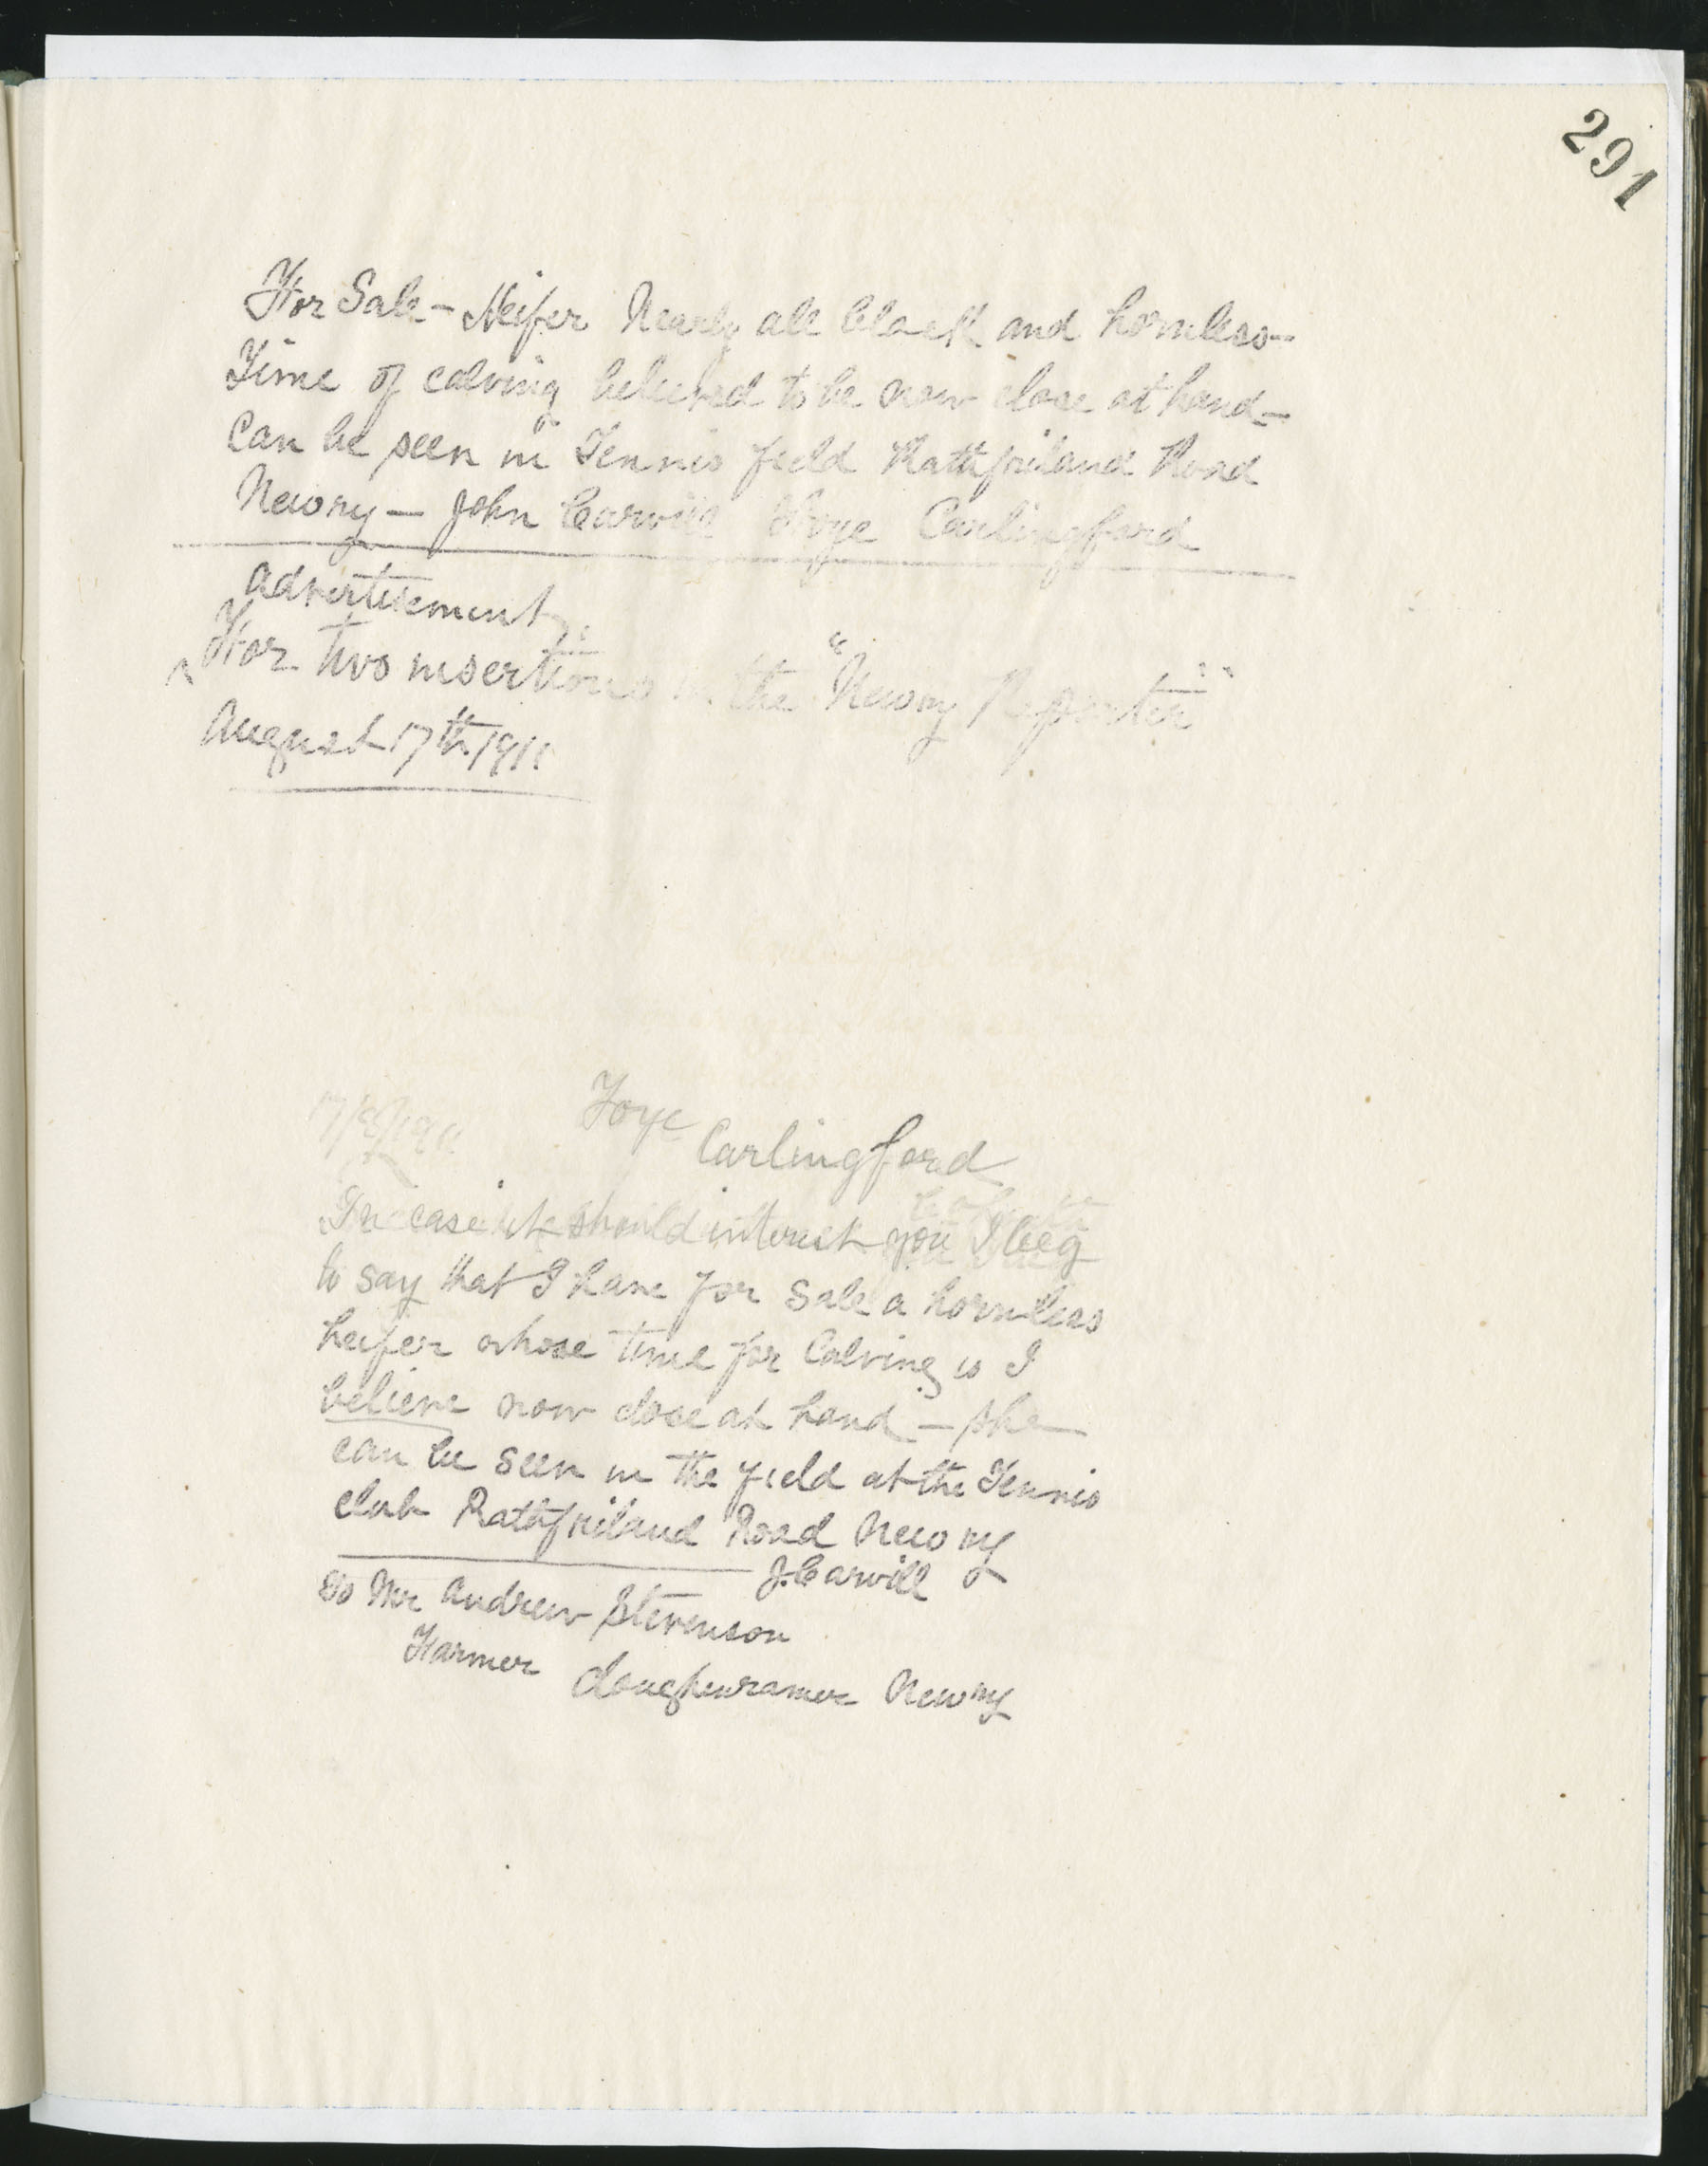 291
For Sale - Heifer Nearly all black and hornless -
Time of calving believed to be now close at hand -
Can be seen in Tennis field Rathfriland Road
Newry - John Carvill Foye Carlingford
Advertisement
For two insertions in the "Newry Reporter"
August 17th 1911
Foye
Carlingford
In case it should interest you I beg
to say that I have for sale a hornless
heifer whose time for Calving is I
believe now close at hand - she
can be seen in the field at the Tennis
club Rathfriland Road Newry
J. Carvill
To Mr Andrew Stevenson
Farmer Newry